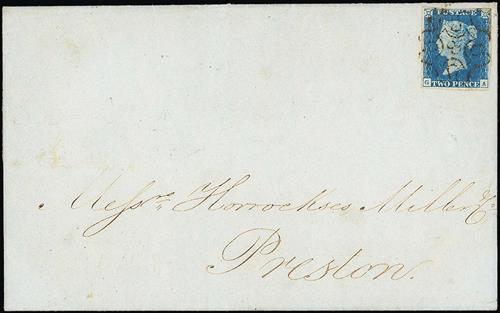 POSTAGE
G A
TWO PENCE
Messrs Horrockses Miller & Co
Preston.